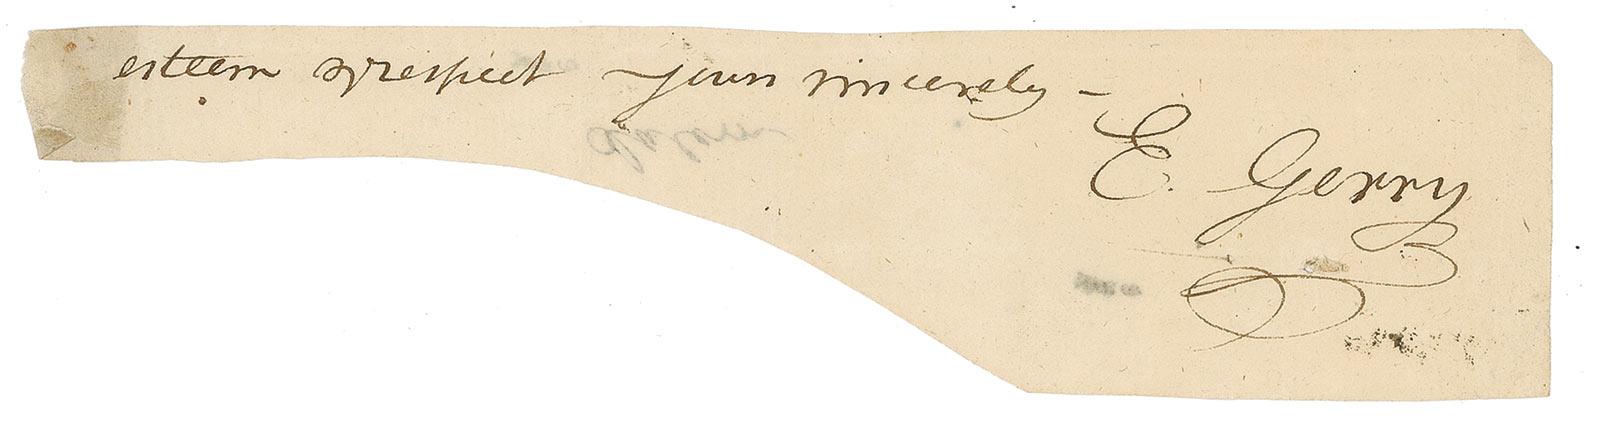 esteem & respect yours sincerely –
E. Gerry